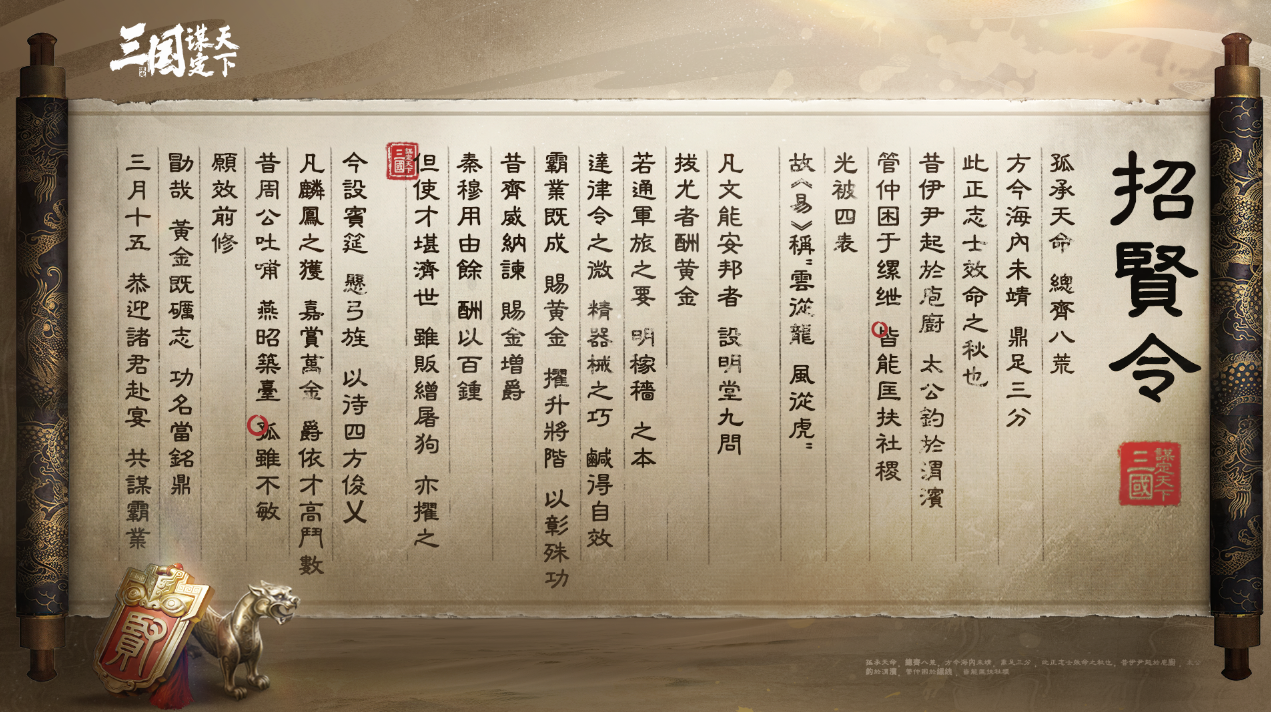 三国
谋定天下
招賢令
三國
謀定天下
孤承天命 總齊八荒
方今海內未靖 鼎足三分
此正志士效命之秋也
昔伊尹起於庖廚 太公釣於渭濱
管仲困于缧绁 皆能匡扶社稷
光被四表
故《易》稱"雲從龍 風從虎"
凡文能安邦者 設明堂九問
拔尤者酬黄金
若通軍旅之要 明稼穡 之本
達律令之微 精器械之巧 鹹得自效
霸業既成 賜黄金 擢升將階 以彰殊功
昔齊威納諫 賜金增爵
秦穆用由餘 酬以百鍾
但使才堪濟世 雖販繒屠狗 亦擢之
三國
謀定天下
今設賓筵 懸弓旌 以待四方俊乂
凡麟鳳之獲 嘉賞萬金 爵依才高鬥數
昔周公吐哺 燕昭築臺 孤雖不敏
願效前修
勖哉 黃金既礪志 功名當銘鼎
三月十五 恭迎諸君赴宴 共謀霸業
賢